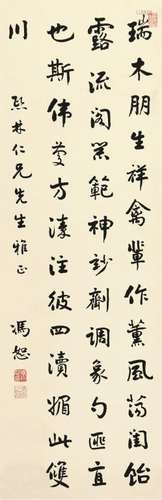 瑞木朋生祥禽輩作薰風蕩閨飴
露流閣黑範神妙劑調象勺匪直
也斯偉慶方溱注彼四瀆媚此雙
川
熙林仁兄先生雅正
馮恕